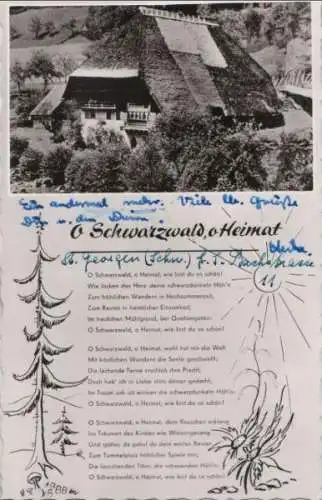 Ein andermal mehr. Viele lb. Grüße
Dir u. den Deinen.
O Schwarzwald, o Heimat
St. Georgen (Schw.)
11
O Schwarzwald, o Heimat, wie bist du so schön!
Wie locken des Herz deine schwarzdunkeln Höh'n
Zum fröhlichen Wandern in Hochsommerszeit,
Zum Rasten in heimlicher Einsamkeit,
Im traulichen Mühlgrund, bei Quellengetön:
O Schwarzwald, o Heimat, wie bist du so schön!
O Schwarzwald, o Heimat, wohl hat mir die Welt
Mit köstlichen Wundern die Seele geschwellt;
Die lachende Ferne erschloß ihre Pracht,
Doch hab' ich in Liebe stets deiner gedacht,
Im Traum sah ich winken die schwarzdunkeln Höh'n:
O Schwarzwald, o Heimat, wie bist du so schön!
O Schwarzwald, o Heimat, dem Rauschen entlang
Ins Träumen des Kindes wie Wiegengesang,
Und gabst du dem weiten Revier
Zum Tummelplatz fröhlicher Spiele mir;
Die lauschenden Täler, die schweigenden Höh'n:
O Schwarzwald, o Heimat, wie bist du so schön!